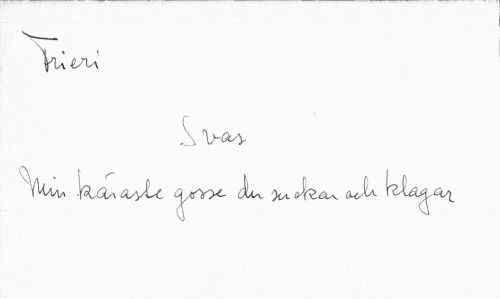 Frieri
Svar
Min käraste gosse du suckar och klagar